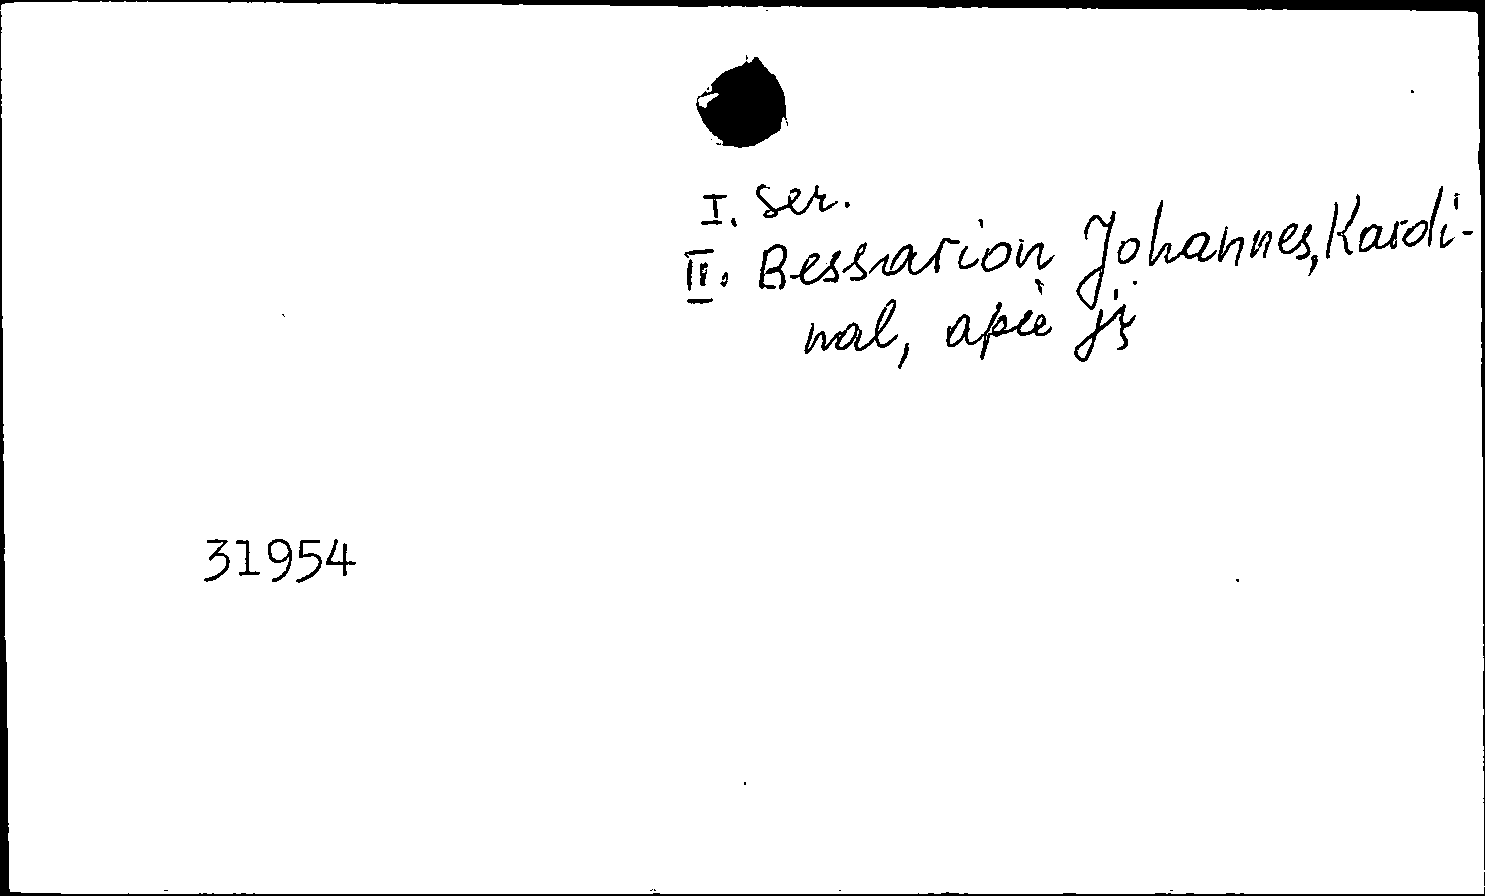 I. Ser.
II. Bessarion Johannes, Kardi-
nal, apie jį
31954